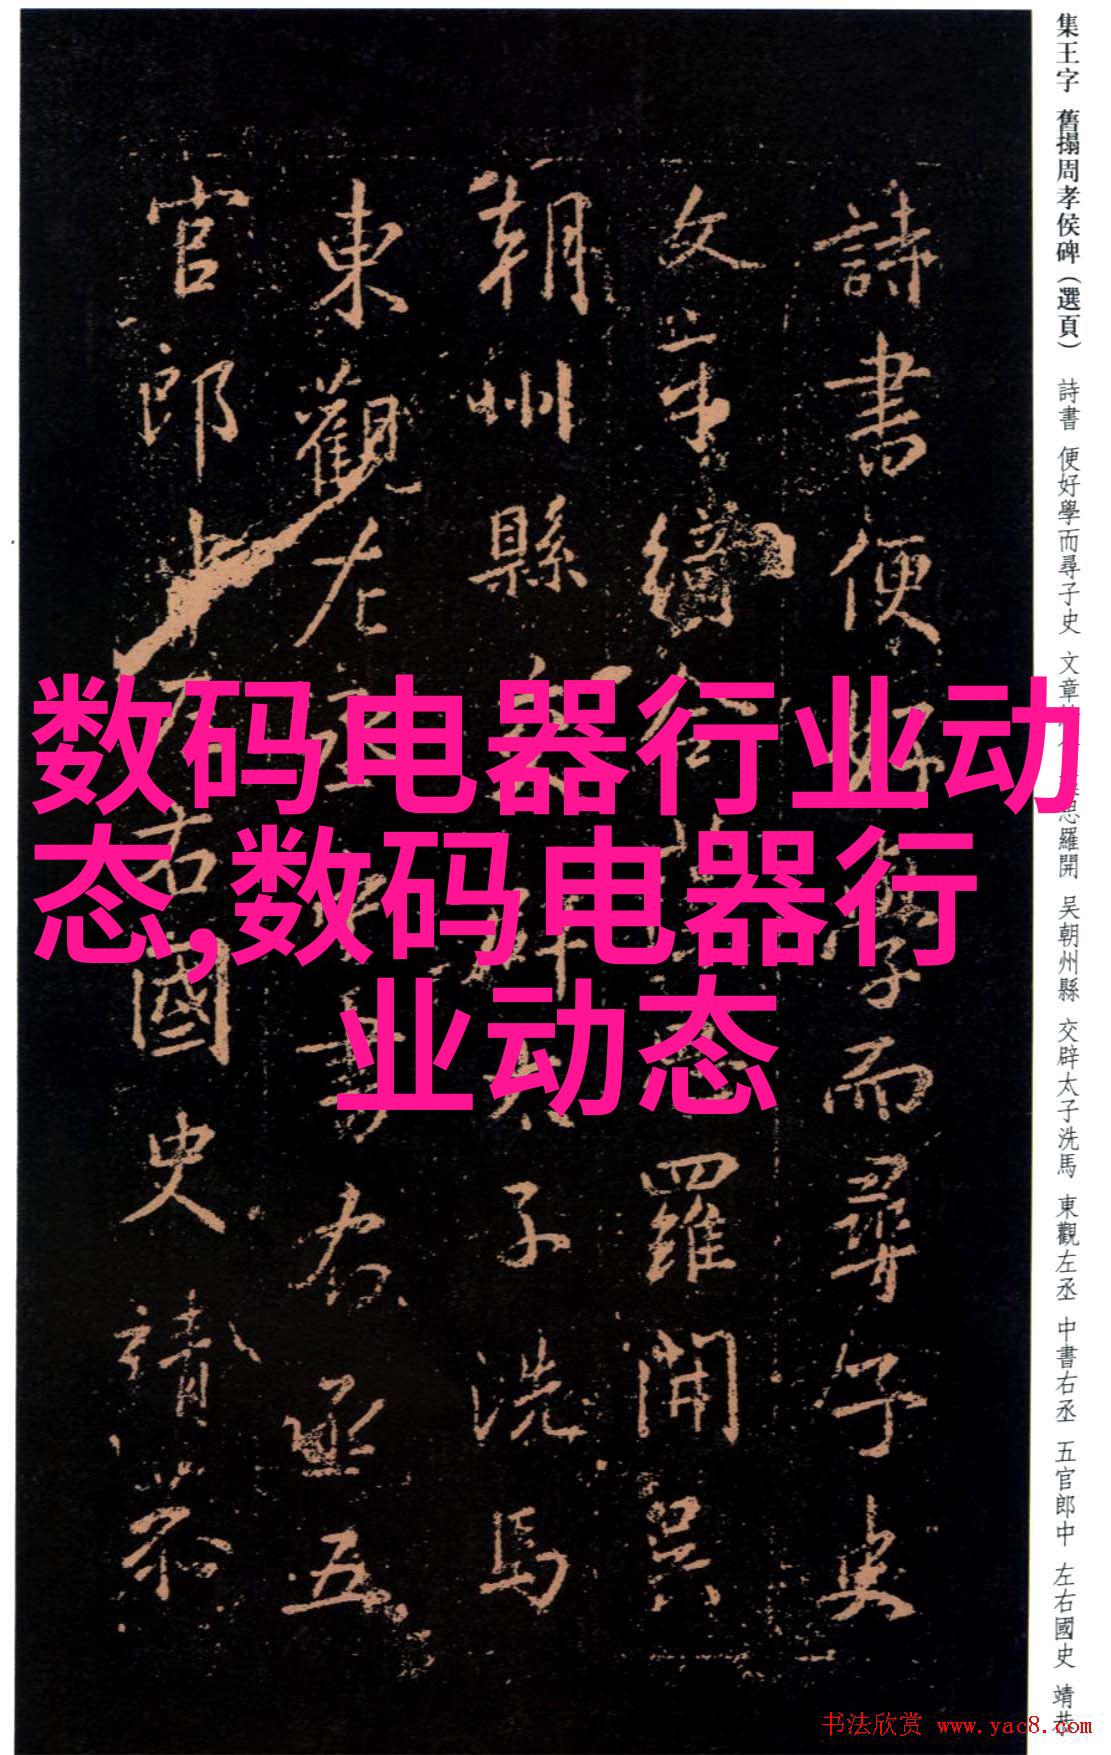 集王字 舊搨周孝侯碑(選頁) 詩書 便好學而尋子史 文章 思羅開 吴朝州縣 交辟太子洗馬 東觀左丞 中書右丞 五官郎中 左右國史 靖恭
詩書便好學而尋子史
文章綺合 羅開吴
朝州縣 子洗馬
東觀左 書右丞五
官郎 右國史靖恭
数码电器行业动
态,数码电器行
业动态
书法欣赏 www.yac8.com